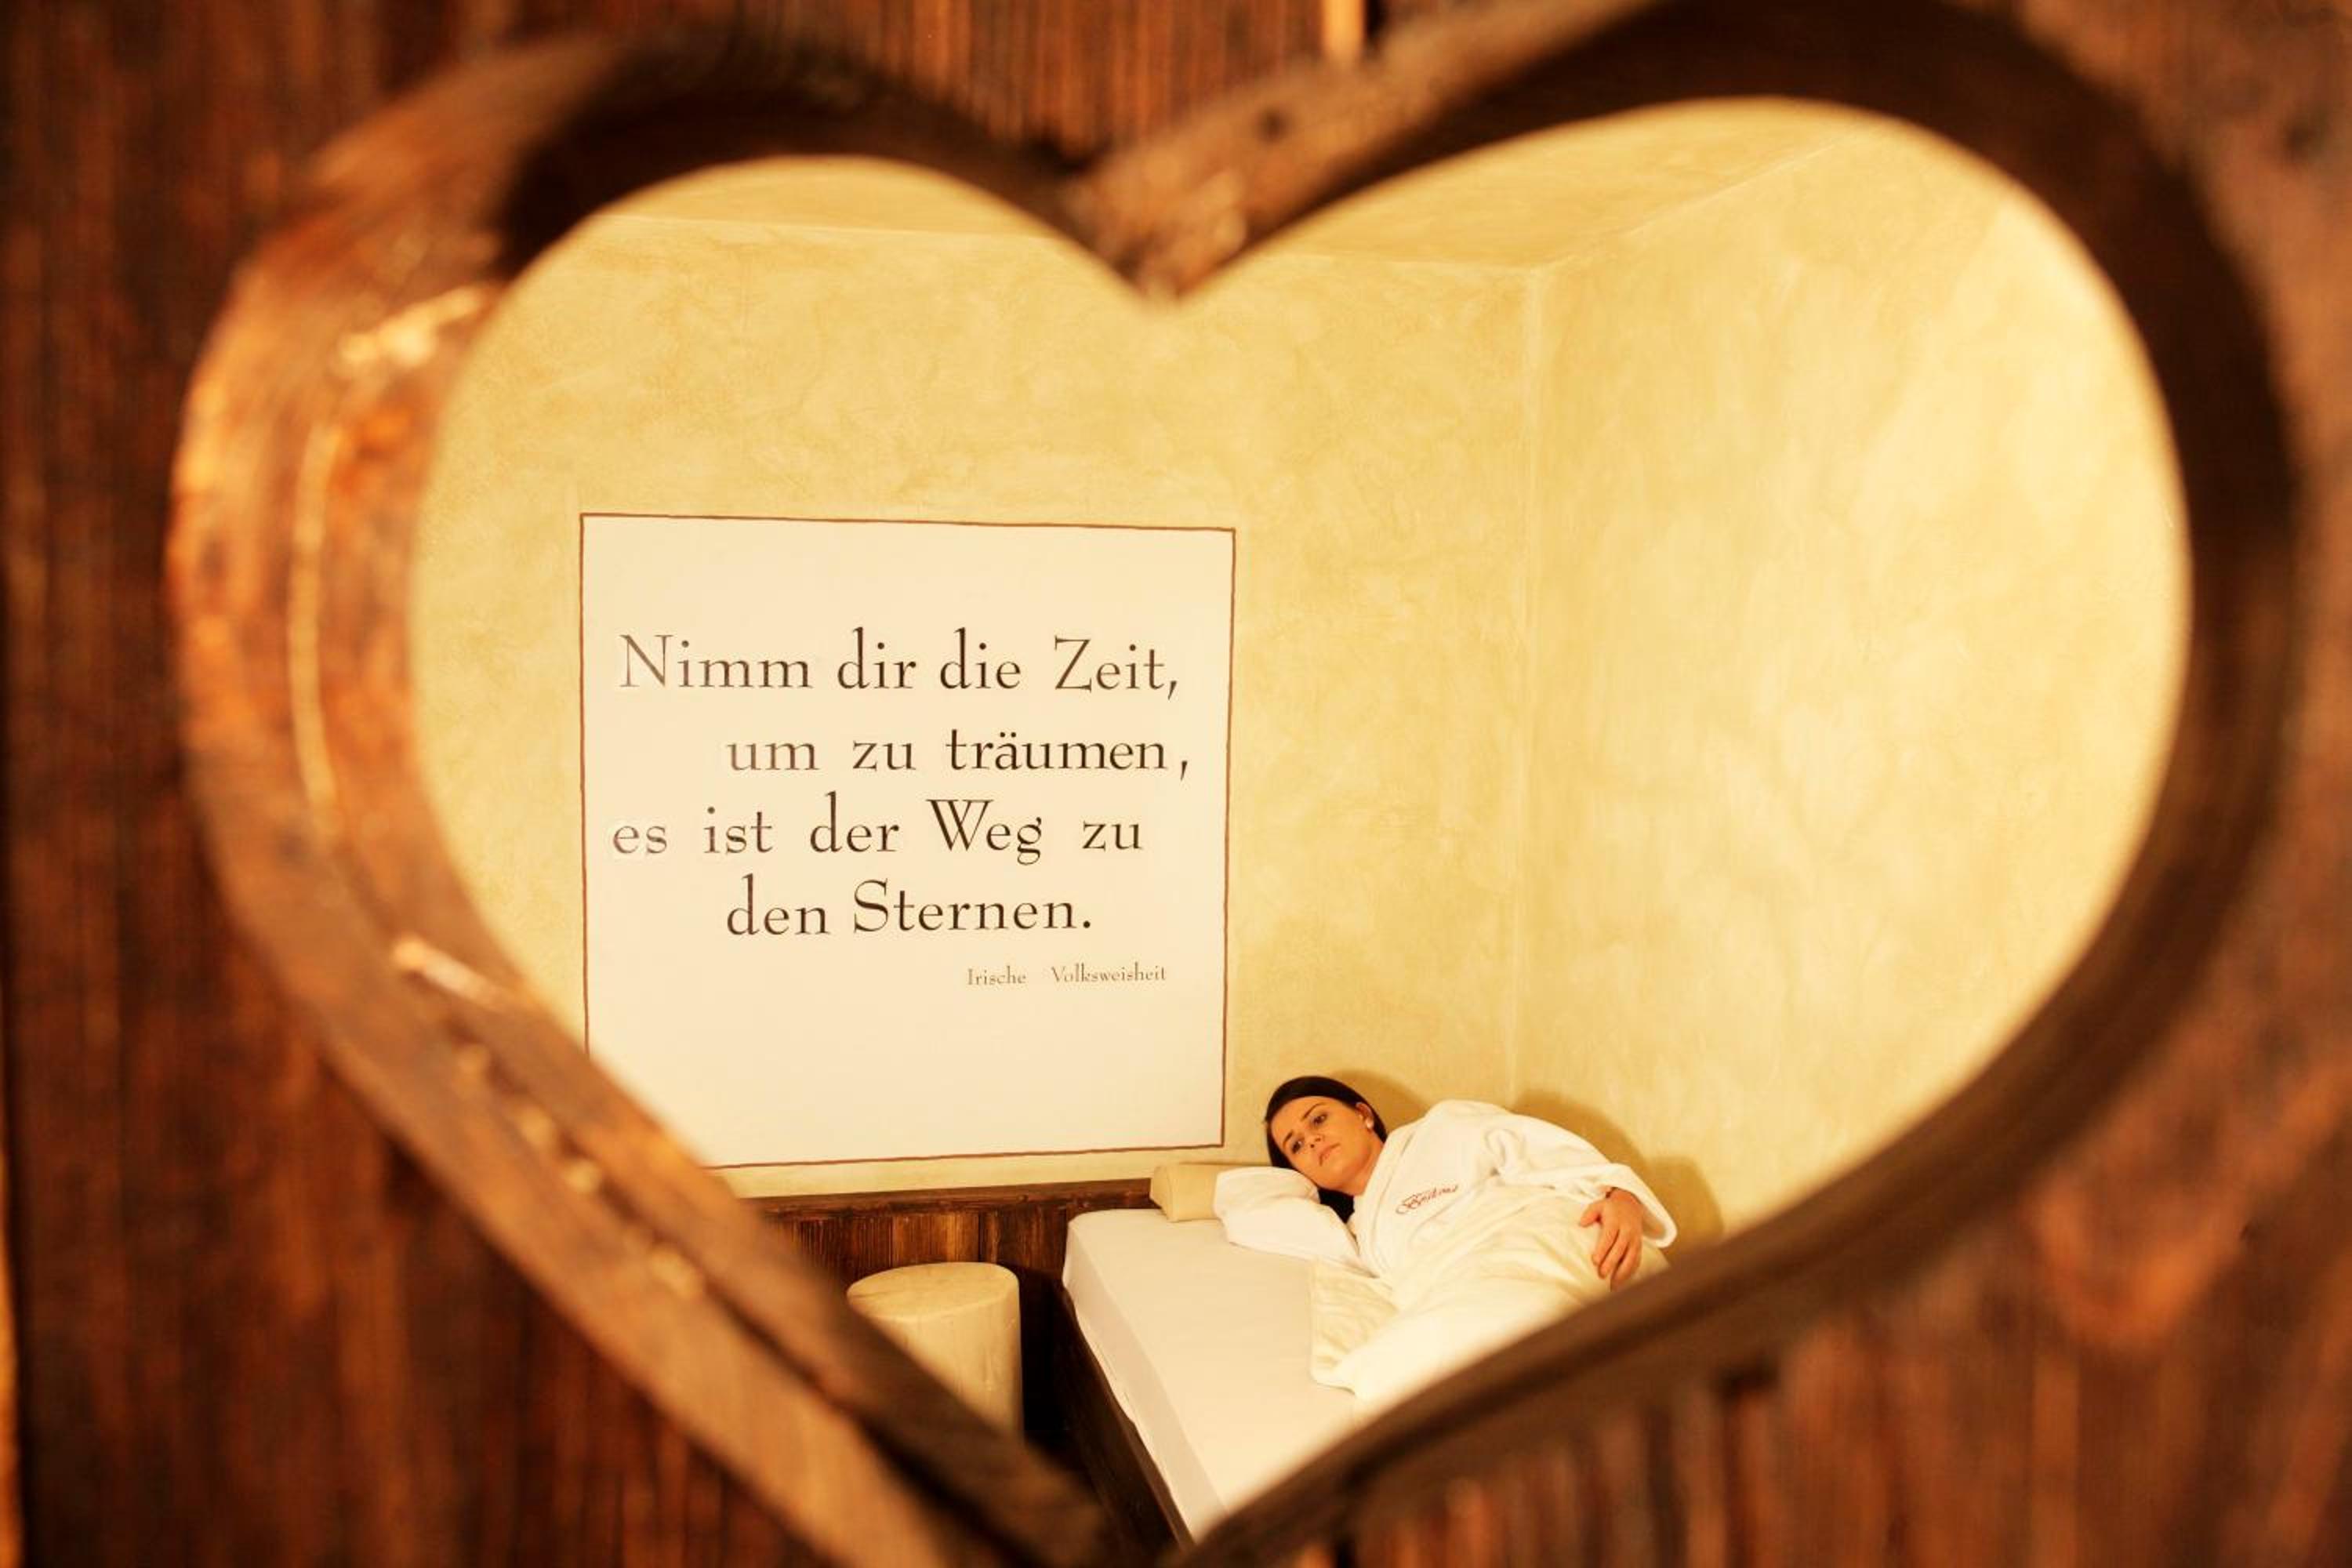 Nimm dir die Zeit,
um zu träumen,
es ist der Weg zu
den Sternen.
Irische Volksweisheit